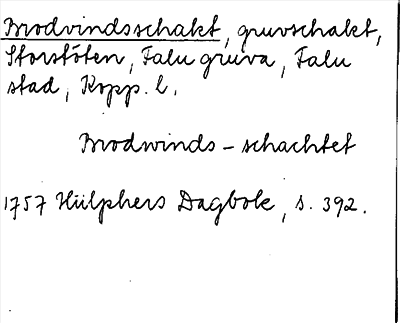 Brodvindsschakt, gruvschakt,
Storstöten, Falu gruva, Falu
stad, Kopp. l.
Brodwinds - schachtet
1757 Hülphers Dagbok, s. 392.